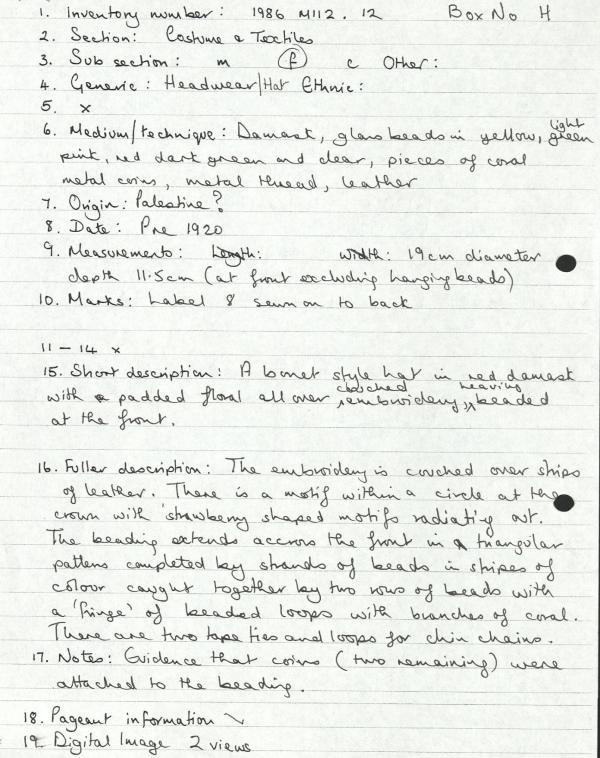 1. Inventory number: 1986 M112.12 Box No H
2. Section: Costume & Textiles
3. Sub section: m f c Other:
4. Generic: Headwear/Hat Ethnic:
5. x
6. Medium/technique: Damask, glass beads in yellow, light green
pink, red dark green and clear, pieces of coral
metal coins, metal thread, leather
7. Origin: Palestine?
8. Date: Pre 1920
9. Measurements: Length: width: 19cm diameter
depth 11.5cm (at front excluding hanging beads)
10. Marks: Label 8 sewn on to back
11 - 14 x
15. Short description: A bonet style hat in red damask
with a padded floral all over couched embroidery, heaving beaded
at the front.
16. Fuller description: The embroidery is couched over strips
of leather. There is a motif within a circle at the
crown with 'strawberry shaped motifs radiating out.
The beading extends accross the front in a triangular
pattern completed by strands of beads in stripes of
colour caught together by two rows of beads with
a 'fringe' of beaded loops with branches of coral.
There are two tape ties and loops for chin chains.
17. Notes: Evidence that coins (two remaining) were
attached to the beading.
18. Pageant information
19. Digital Image 2 views